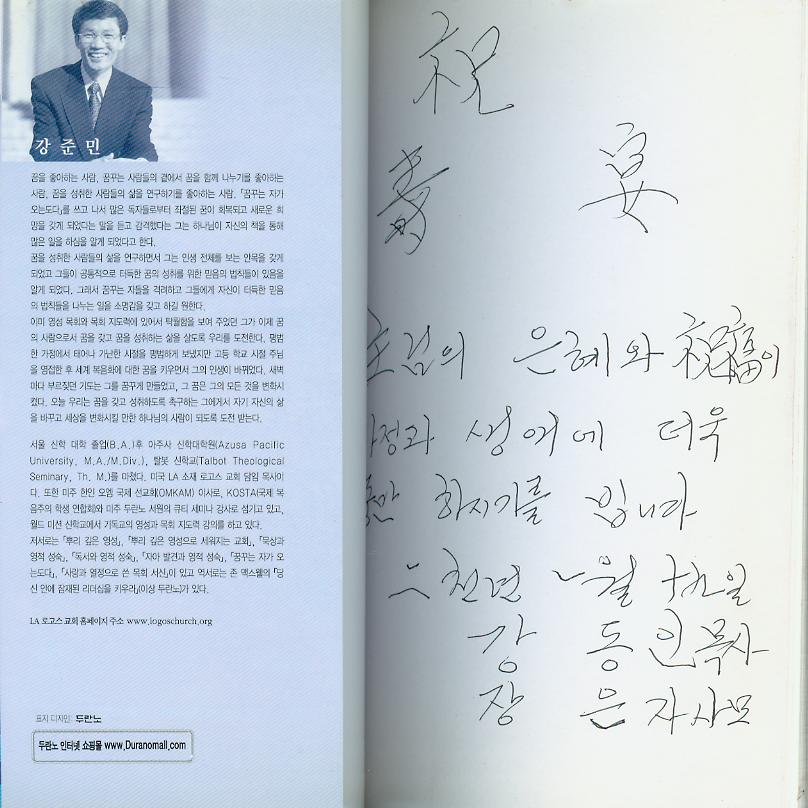 강준민
꿈을 좋아하는 사람, 꿈꾸는 사람들의 곁에서 꿈을 함께 나누기를 좋아하는
사람, 꿈을 성취한 사람들의 삶을 연구하기를 좋아하는 사람, 「꿈꾸는 자가
오는도다」를 쓰고 나서 많은 독자들로부터 좌절된 꿈이 회복되고 새로운 희
망을 갖게 되었다는 말을 듣고 감격했다는 그는 하나님이 자신의 책을 통해
많은 일을 하심을 알게 되었다고 한다.
꿈을 성취한 사람들의 삶을 연구하면서 그는 인생 전체를 보는 안목을 갖게
되었고 그들이 공통적으로 터득한 꿈의 성취를 위한 믿음의 법칙들이 있음을
알게 되었다. 그래서 꿈꾸는 자들을 격려하고 그들에게 자신이 터득한 믿음
의 법칙들을 나누는 일을 소명감을 갖고 하길 원한다.
이미 영성 목회와 목회 지도력에 있어서 탁월함을 보여 주었던 그가 이제 꿈
의 사람으로서 꿈을 갖고 꿈을 성취하는 삶을 살도록 우리를 도전한다. 평범
한 가정에서 태어나 가난한 시절을 평범하게 보냈지만 고등 학교 시절 주님
을 영접한 후 세계 복음화에 대한 꿈을 키우면서 그의 인생이 바뀌었다. 새벽
마다 부르짖던 기도는 그를 꿈꾸게 만들었고, 그 꿈은 그의 모든 것을 변화시
켰다. 오늘 우리는 꿈을 갖고 성취하도록 촉구하는 그에게서 자기 자신의 삶
을 바꾸고 세상을 변화시킬 만한 하나님의 사람이 되도록 도전 받는다.
서울 신학 대학 졸업(B.A.)후 아주사 신학대학원(Azusa Pacific
University, M.A./M.Div.), 탈봇 신학교(Talbot Theological
Seminary, Th. M.)를 마쳤다. 미국 LA 소재 로고스 교회 담임 목사이
다. 또한 미주 한인 오엠 국제 선교회(OMKAM) 이사로, KOSTA(국제 복
음주의 학생 연합회)와 미주 두란노 서원의 큐티 세미나 강사로 섬기고 있고,
월드 미션 신학교에서 기독교의 영성과 목회 지도력 강의를 하고 있다.
저서로는 「뿌리 깊은 영성」, 「뿌리 깊은 영성으로 세워지는 교회」, 「묵상과
영적 성숙」, 「독서와 영적 성숙」, 「자아 발견과 영적 성숙」, 「꿈꾸는 자가 오
는도다」, 「사랑과 열정으로 쓴 목회 서신」이 있고 역서로는 존 맥스웰의 「당
신 안에 잠재된 리더십을 키우라」(이상 두란노)가 있다.
LA 로고스 교회 홈페이지 주소 www.logoschurch.org
표지 디자인: 두란노
두란노 인터넷 쇼핑몰 www.Duranomall.com
祝
壽 宴
주님의 은혜와 祝福이
가정과 생애에 더욱
충만 하시기를 빕니다
천년 월 일
강 동 인 목사
장 은 자 사모